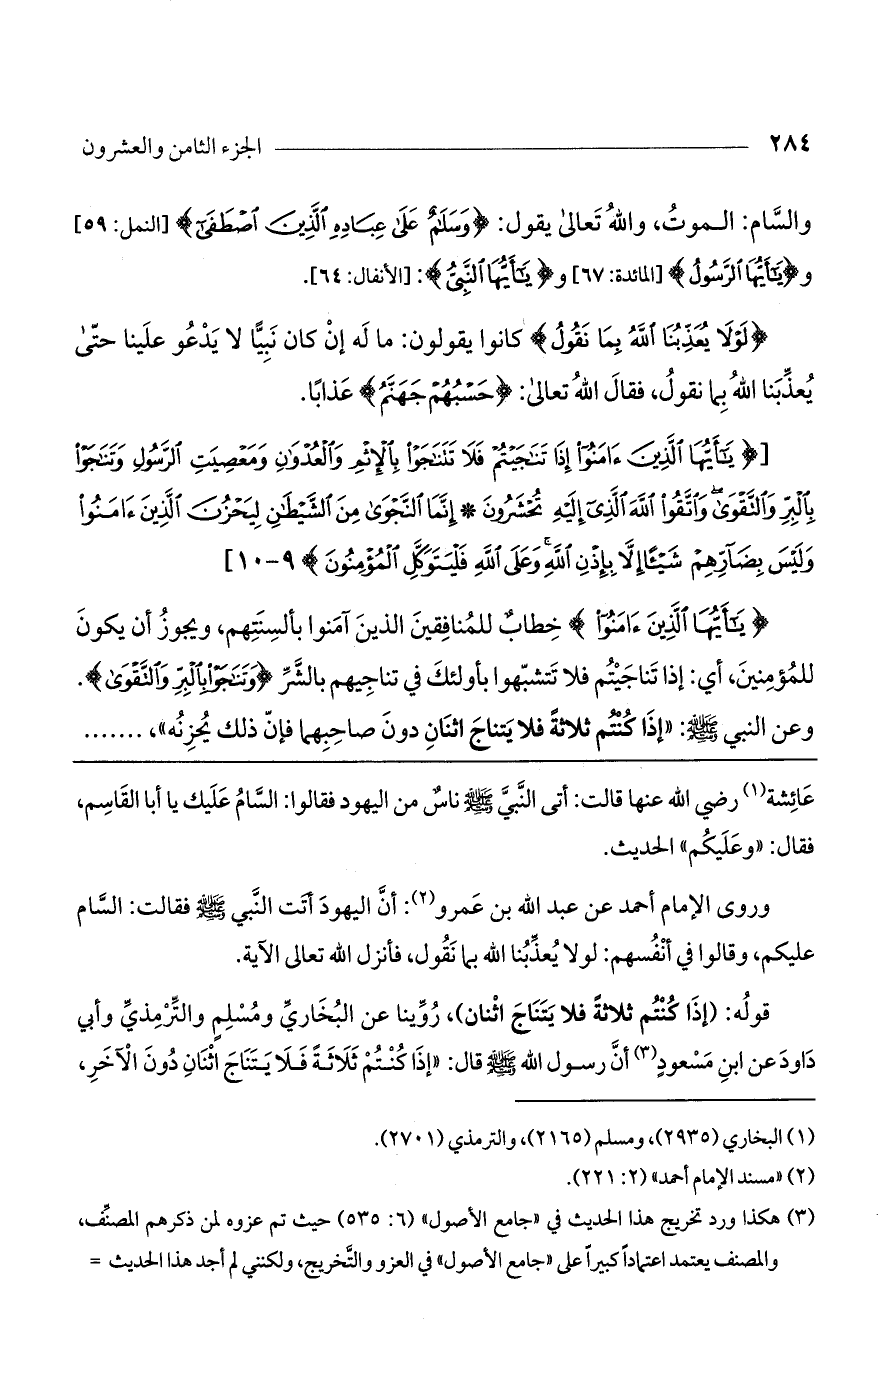 ٢٨٤ ــــــــــــــــــــ الجزء الثامن والعشرون
والسَّام: الـموتُ، واللهُ تَعالىٰ يقول: ﴿وَسَلَٰمٌ عَلَىٰ عِبَادِهِ ٱلَّذِينَ ٱصْطَفَىٰٓ﴾ [النمل: ٥٩]
و﴿يَٰٓأَيُّهَا ٱلرَّسُولُ﴾ [المائدة: ٦٧] و﴿يَٰٓأَيُّهَا ٱلنَّبِىُّ﴾: [الأنفال: ٦٤].
﴿لَوْلَا يُعَذِّبُنَا ٱللَّهُ بِمَا نَقُولُ﴾ كانوا يقولون: ما لَه إنْ كان نَبِيًّا لا يَدْعُو علَينا حتّىٰ
يُعذِّبَنا اللهُ بِما نقولُ، فقالَ اللهُ تعالىٰ: ﴿حَسْبُهُمْ جَهَنَّمُ﴾ عَذابًا.
[﴿يَٰٓأَيُّهَا ٱلَّذِينَ ءَامَنُوٓا۟ إِذَا تَنَٰجَيْتُمْ فَلَا تَتَنَٰجَوْا۟ بِٱلْإِثْمِ وَٱلْعُدْوَٰنِ وَمَعْصِيَتِ ٱلرَّسُولِ وَتَنَٰجَوْا۟
بِٱلْبِرِّ وَٱلتَّقْوَىٰ ۖ وَٱتَّقُوا۟ ٱللَّهَ ٱلَّذِىٓ إِلَيْهِ تُحْشَرُونَ * إِنَّمَا ٱلنَّجْوَىٰ مِنَ ٱلشَّيْطَٰنِ لِيَحْزُنَ ٱلَّذِينَ ءَامَنُوا۟
وَلَيْسَ بِضَآرِّهِمْ شَيْـًٔا إِلَّا بِإِذْنِ ٱللَّهِ ۚ وَعَلَى ٱللَّهِ فَلْيَتَوَكَّلِ ٱلْمُؤْمِنُونَ﴾ ٩-١٠]
﴿يَٰٓأَيُّهَا ٱلَّذِينَ ءَامَنُوٓا۟﴾ خِطابٌ للمُنافِقينَ الذينَ آمَنوا بألسِنَتِهم، ويجوزُ أن يكونَ
للمُؤمِنينَ، أي: إذا تَناجَيْتُم فلا تَتشبّهوا بأولئكَ في تناجِيهم بالشَّرِّ ﴿وَتَنَٰجَوْا۟ بِٱلْبِرِّ وَٱلتَّقْوَىٰ﴾.
وعن النبي ﷺ: «إذَا كُنْتُم ثلاثةً فلا يَتناجَ اثنَانِ دونَ صاحِبِهما فإنّ ذلك يُحزِنُه»، .......
عَائِشة(١) رضي الله عنها قالت: أتى النَّبيَّ ﷺ ناسٌ من اليهود فقالوا: السَّامُ عَلَيك يا أبا القَاسِم،
فقال: «وعَلَيكُم» الحديث.
وروى الإمام أحمد عن عبد الله بن عَمرو(٢): أنَّ اليهودَ أتَت النَّبي ﷺ فقالت: السَّام
عليكم، وقالوا في أنْفُسهم: لولا يُعذِّبُنا الله بما نَقُول، فأنزل الله تعالى الآية.
قولُه: (إذَا كُنْتُم ثلاثةً فلا يَتَنَاجَ اثْنان)، رُوِّينا عن البُخَاريِّ ومُسْلِمٍ والتِّرْمِذيِّ وأبي
دَاودَ عن ابنِ مَسْعودٍ(٣) أنَّ رسـول الله ﷺ قال: «إذَا كُنْـتُمْ ثَلَاثَـةً فَـلَا يَـتَنَاجَ اثْنَانِ دُونَ الْآخَرِ،
(١) البخاري (٢٩٣٥)، ومسلم (٢١٦٥)، والترمذي (٢٧٠١).
(٢) «مسند الإمام أحمد» (٢: ٢٢١).
(٣) هكذا ورد تخريج هذا الحديث في «جامع الأصول» (٦: ٥٣٥) حيث تم عزوه لمن ذكرهم المصنِّف،
والمصنف يعتمد اعتماداً كبيراً على «جامع الأصول» في العزو والتَّخريج، ولكنني لم أجد هذا الحديث =